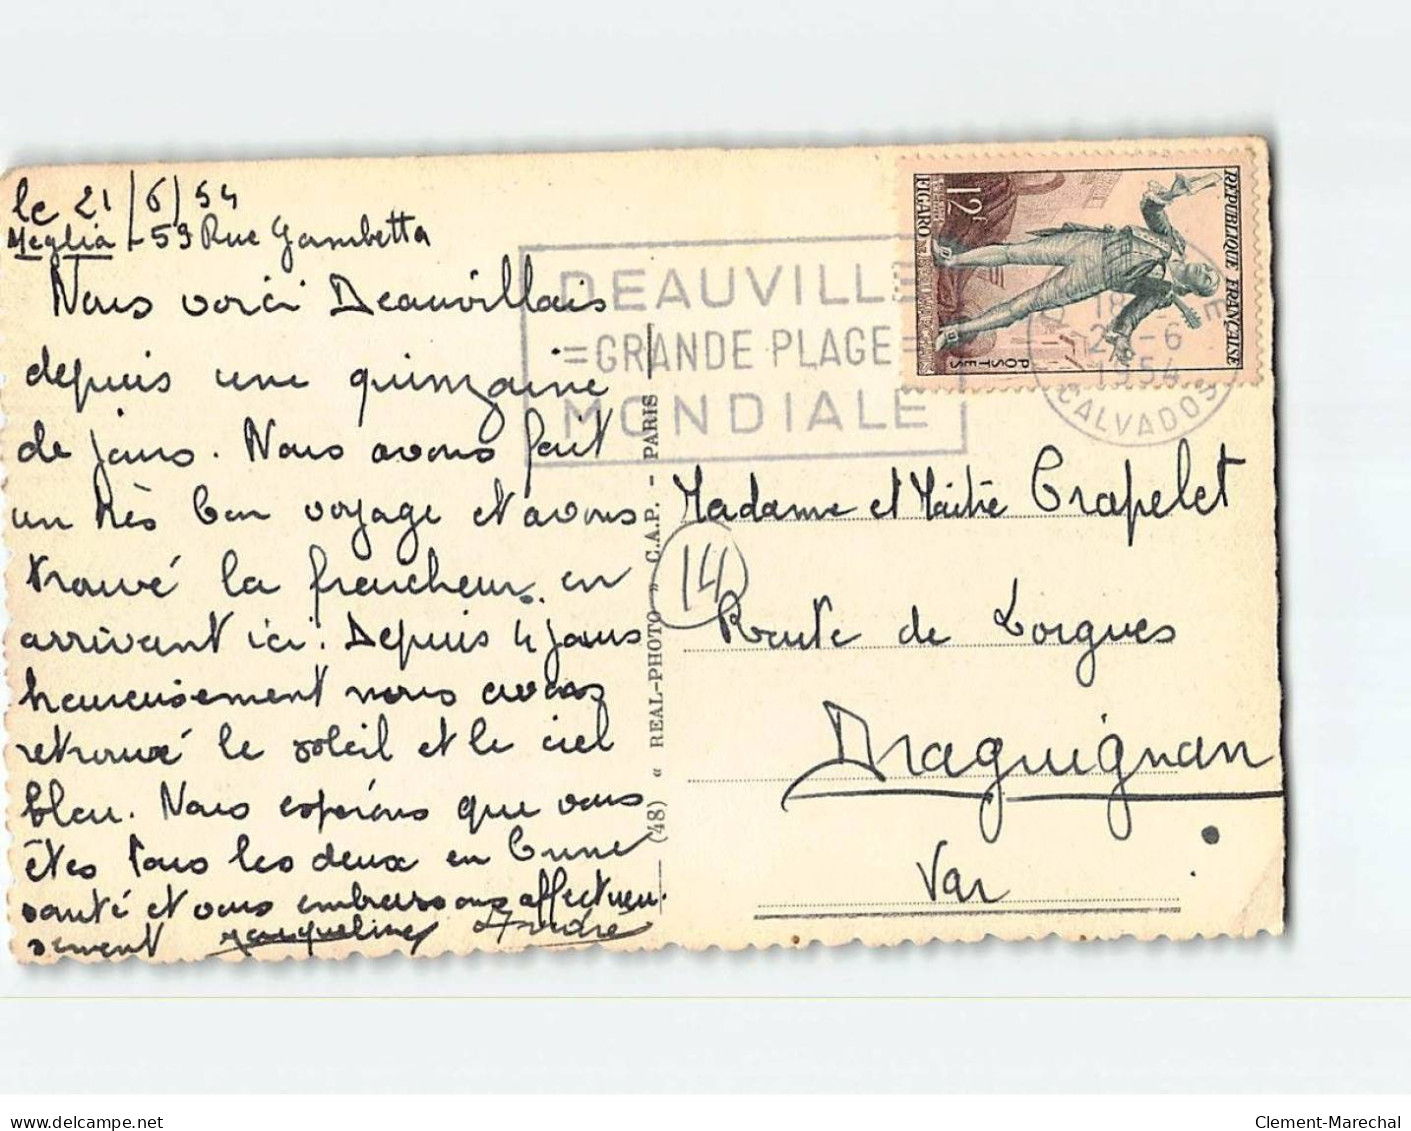 le 21/6/54
Meglia - 59 Rue Gambetta
Nous voici Deauvillais
depuis une quinzaine
de jours. Nous avons fait
un très bon voyage et avons
trouvé la fraicheur en
arrivant ici. Depuis 4 jours
heureusement nous avons
retrouvé le soleil et le ciel
bleu. Nous espérons que vous
êtes tous les deux en bonne
santé et vous embrassons affectueu-
sement Jacqueline André
DEAUVILLE
=GRANDE PLAGE=
MONDIALE
REPUBLIQUE FRANÇAISE
POSTES
12F
FIGARO
18
2 -6
1954
CALVADOS
(48) « REAL-PHOTO » C.A.P. - PARIS
Madame et Maître Crapelet
14
Route de Lorgues
Draguignan
Var
www.delcampe.net
Clement-Marechal